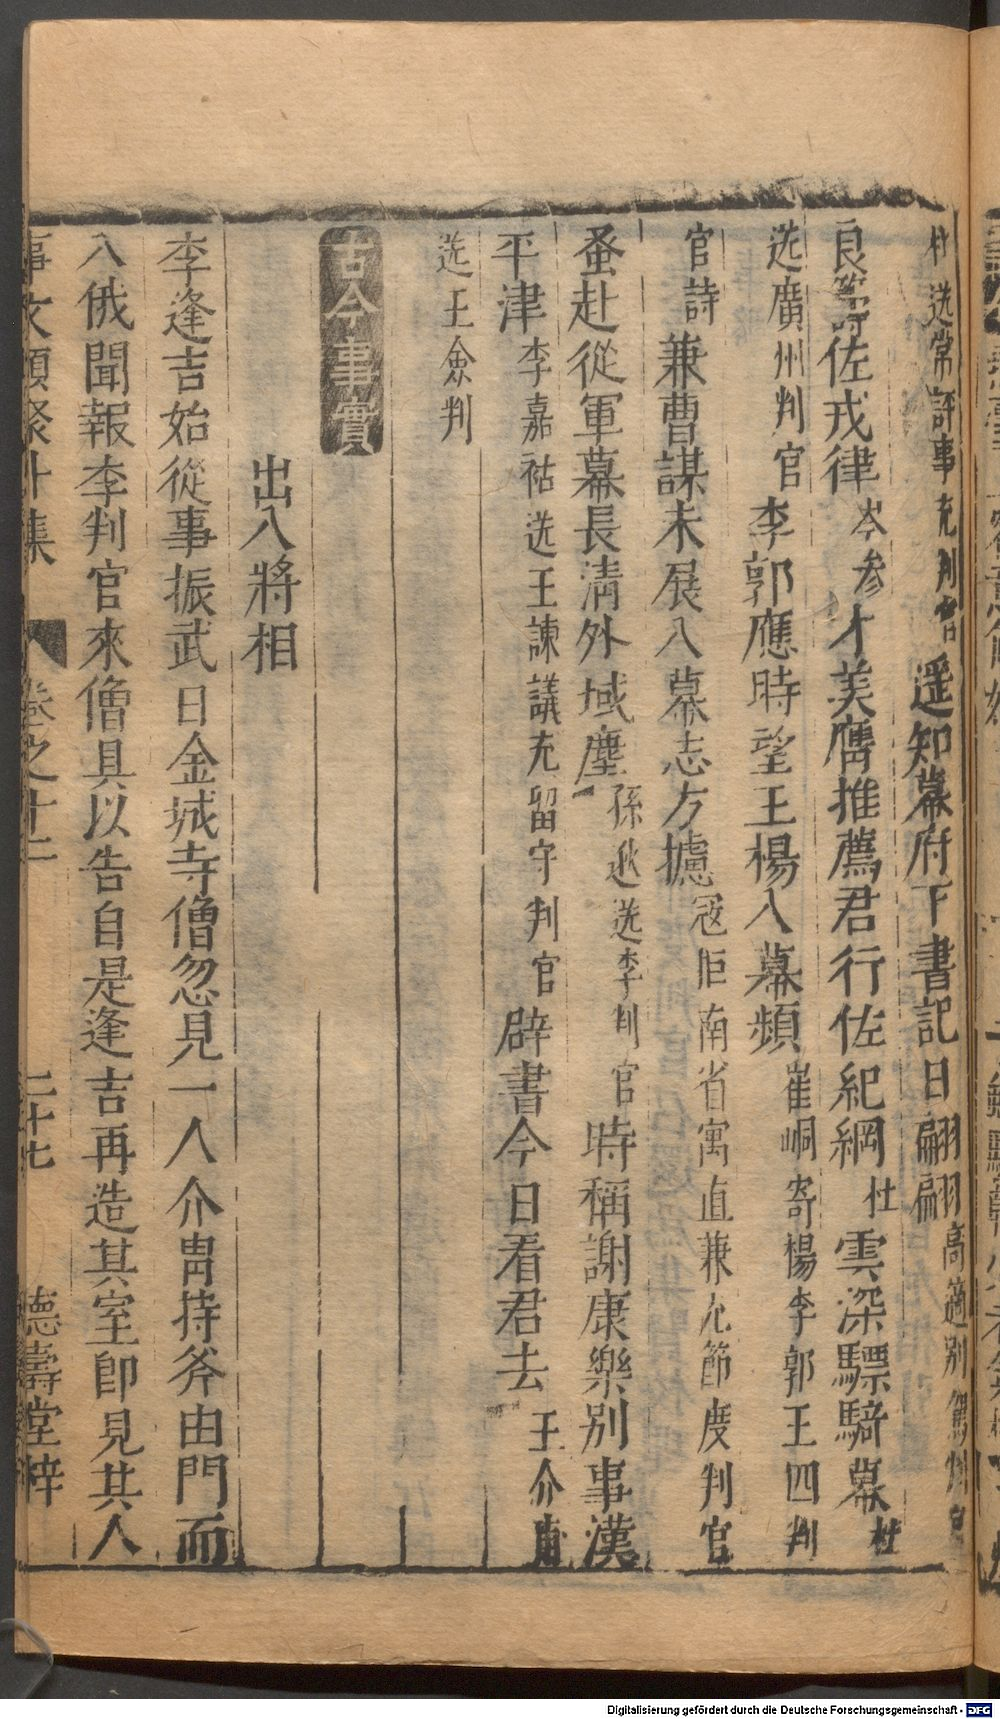 杜送常評事充判官遥知幕府下書記日翩翩高適別
良籌佐戎律岑參才美膺推薦君行佐紀綱杜雲深驃騎幕杜
送廣州判官李郭應時望王楊入幕頻崔峒寄楊李郭王四判
官詩兼曹謀未展入幕志方攄冦岠南省寓直兼允節度判官
蚤赴從軍幕長清外域塵孫逖送李判官時稱謝康樂別事漢
平津李嘉祐送王諫議充留守判官辟書今日看君去王介甫
送王僉判
古今事實
出入將相
李逢吉始從事振武日金城寺僧忽見一人介冑持斧由門而
入俄聞報李判官來僧具以告自是逢吉再造其室即見其人
事文類聚外集 卷之十二 二十七 德壽堂梓
Digitalisierung gefördert durch die Deutsche Forschungsgemeinschaft - DFG